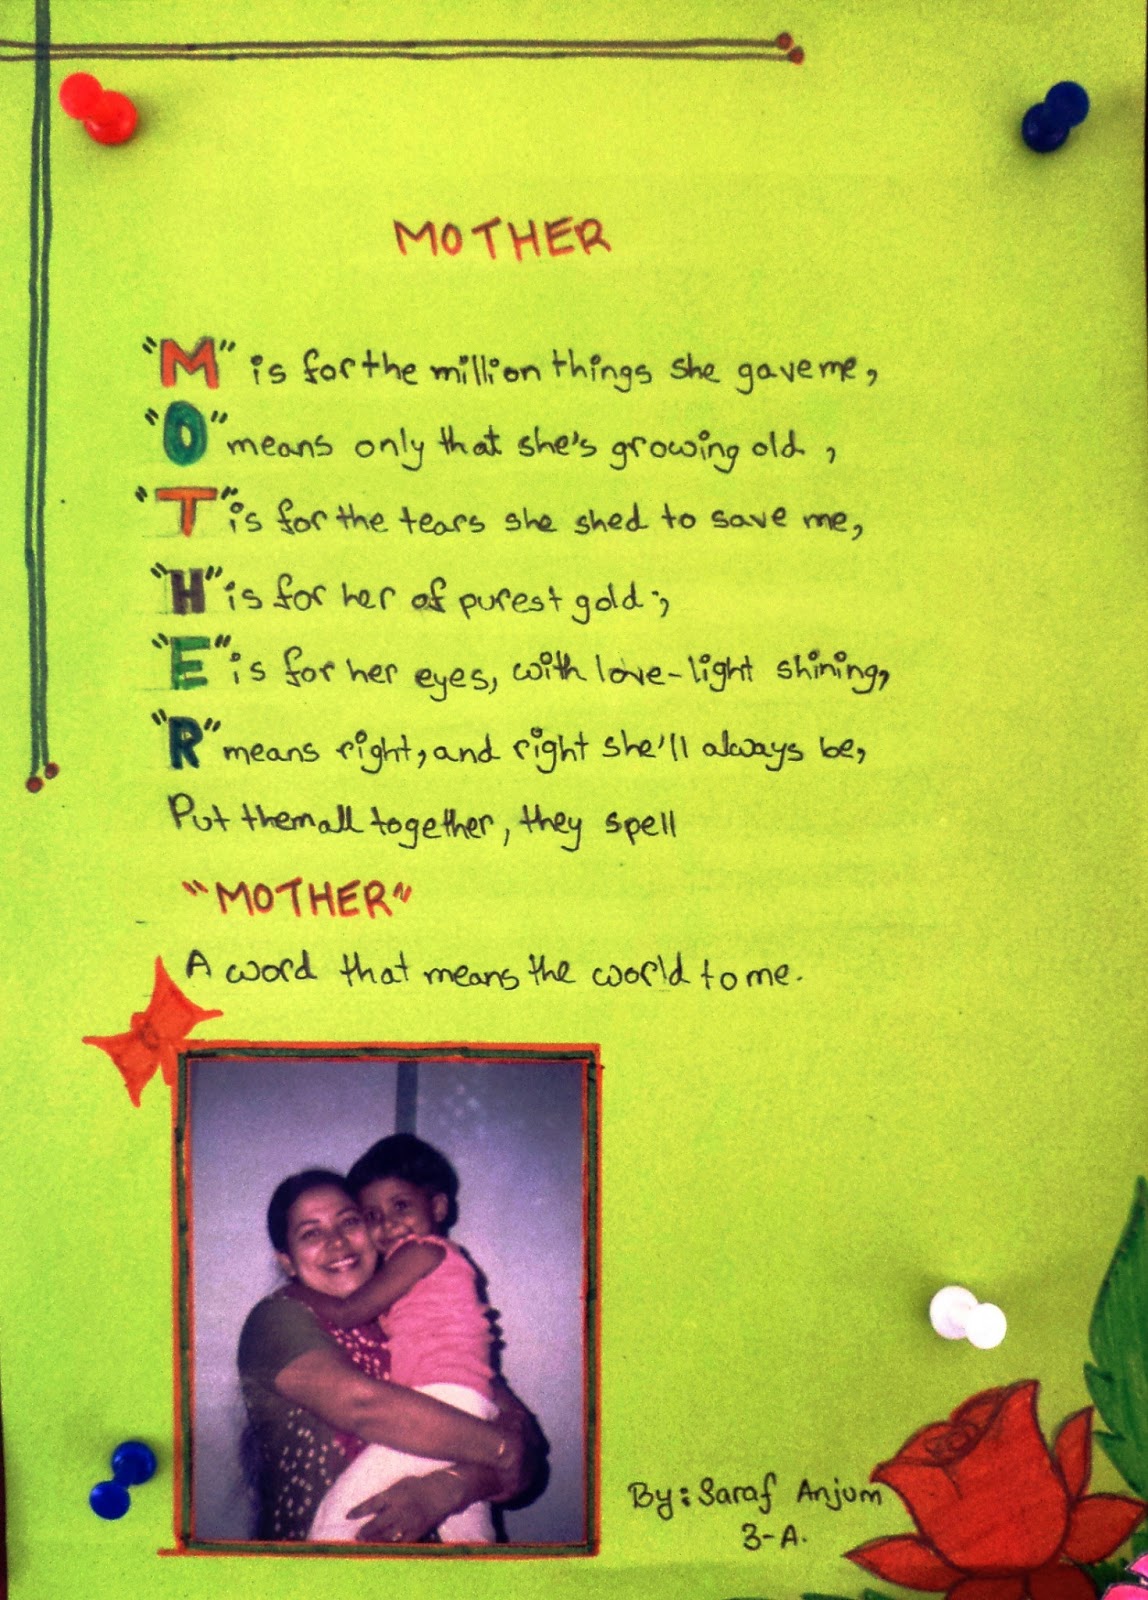 MOTHER
"M" is for the million things she gave me,
"O" means only that she's growing old,
"T" is for the tears she shed to save me,
"H" is for her of purest gold;
"E" is for her eyes, with love-light shining,
"R" means right, and right she'll always be,
Put them all together, they spell
"MOTHER"
A word that means the world to me.
By: Saraf Anjum
3-A.